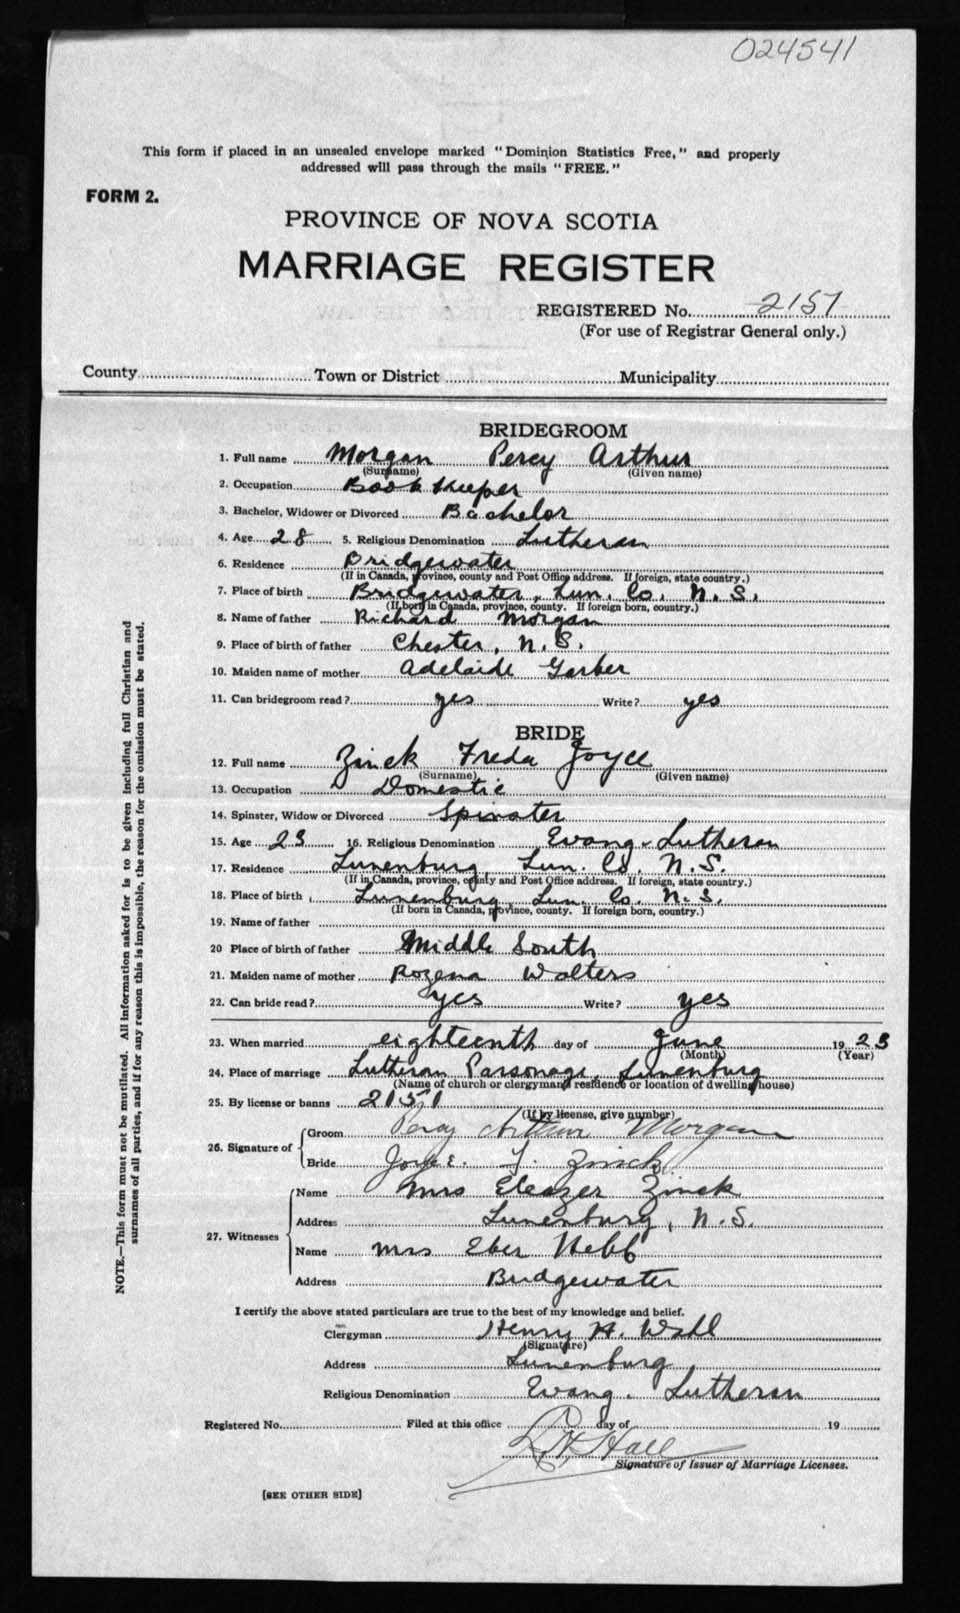 024541
This form if placed in an unsealed envelope marked "Dominion Statistics Free," and properly
addressed will pass through the mails "FREE."
FORM 2.
PROVINCE OF NOVA SCOTIA
MARRIAGE REGISTER
REGISTERED No. 2151
(For use of Registrar General only.)
County Town or District Municipality
BRIDEGROOM
1. Full name Morgan Percy Arthur
(Surname) (Given name)
2. Occupation Book Keeper
3. Bachelor, Widower or Divorced Bachelor
4. Age 28 5. Religious Denomination Lutheran
6. Residence Bridgewater
(If in Canada, province, county and Post Office address. If foreign, state country.)
7. Place of birth Bridgewater, Lun. Co. N. S.
(If born in Canada, province, county. If foreign born, country.)
8. Name of father Richard Morgan
9. Place of birth of father Chester, N. S.
10. Maiden name of mother Adelaide Garber
11. Can bridegroom read? yes Write? yes
BRIDE
12. Full name Zinck Freda Joyce
(Surname) (Given name)
13. Occupation Domestic
14. Spinster, Widow or Divorced Spinster
15. Age 23 16. Religious Denomination Evang. Lutheran
17. Residence Lunenburg, Lun. Co. N. S.
(If in Canada, province, county and Post Office address. If foreign, state country.)
18. Place of birth Lunenburg, Lun. Co. N. S.
(If born in Canada, province, county. If foreign born, country.)
19. Name of father
20 Place of birth of father Middle South
21. Maiden name of mother Rozena Walters
22. Can bride read? yes Write? yes
23. When married eighteenth day of June 1923
(Month) (Year)
24. Place of marriage Lutheran Parsonage, Lunenburg
(Name of church or clergyman's residence or location of dwelling house)
25. By license or banns 2151
(If by license, give number)
26. Signature of
Groom Percy Arthur Morgan
Bride Joyce. F. Zinck
27. Witnesses
Name Mrs Eleazer Zinck
Address Lunenburg, N. S.
Name Mrs Eber Hebb
Address Bridgewater
I certify the above stated particulars are true to the best of my knowledge and belief.
Clergyman Henry A. Wahl
(Signature)
Address Lunenburg
Religious Denomination Evang. Lutheran
Registered No. Filed at this office day of 19
Hall
Signature of Issuer of Marriage Licenses.
[SEE OTHER SIDE]
NOTE.—This form must not be mutilated. All information asked for is to be given including full Christian and
surnames of all parties, and if for any reason this is impossible, the reason for the omission must be stated.